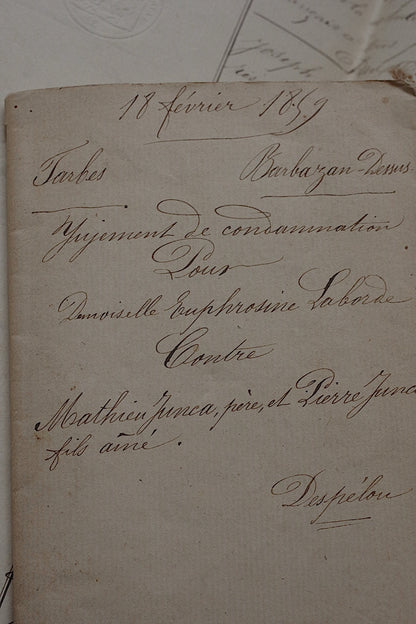 18 février 1859
Tarbes
Barbazan-Dessus
Jugement de condamnation
Pour
Demoiselle Euphrosine Laborde
Contre
Mathieu Junca, père, et Pierre Junca
fils aîné.
Despélou
Joseph